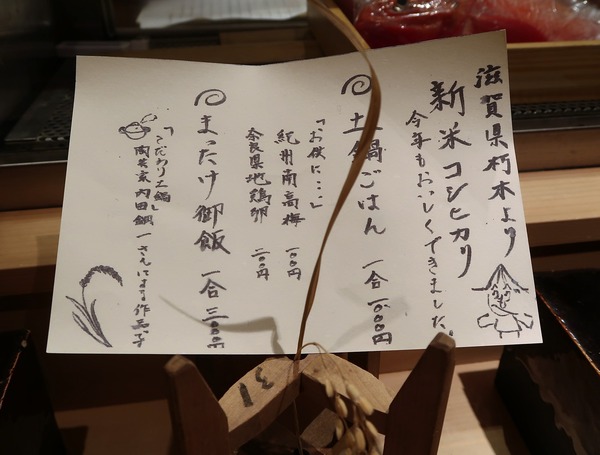 滋賀県朽木より
新米コシヒカリ
今年もおいしくできました。
土鍋ごはん 一合 一、000円
「お供に・・・」
紀州南高梅 一00円
奈良県地鶏卵 二00円
まったけ御飯 一合 三000円
「こだわり土鍋」
陶芸家内田鋼一さんによる作品です